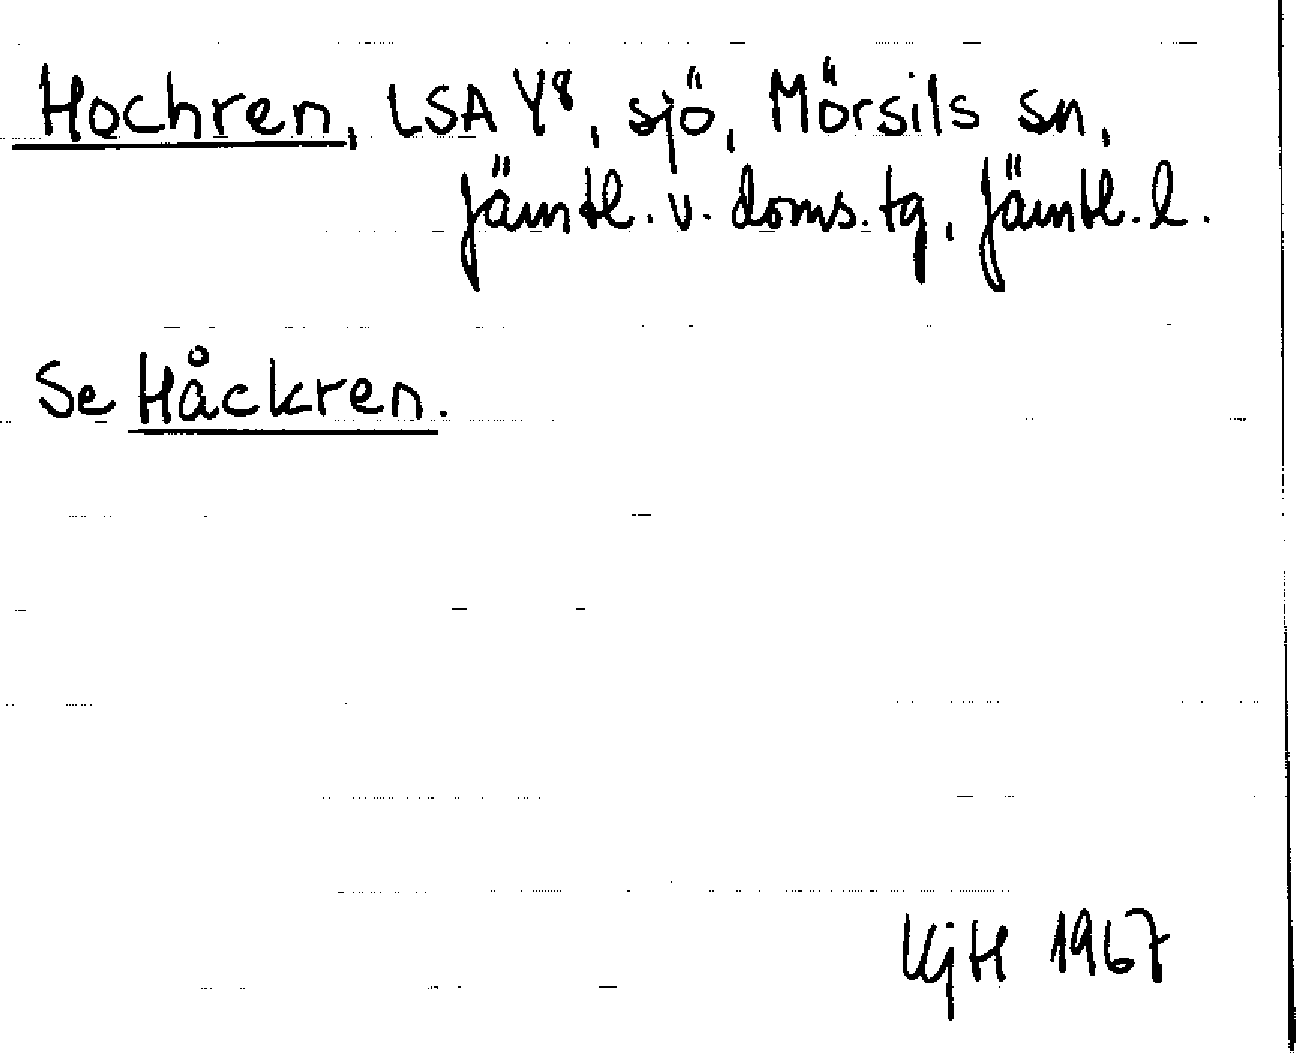 Hochren, LSA Y⁸, sjö, Mörsils sn,
Jämtl. v. doms. tg, Jämtl. l.
Se Håckren.
KjH 1967